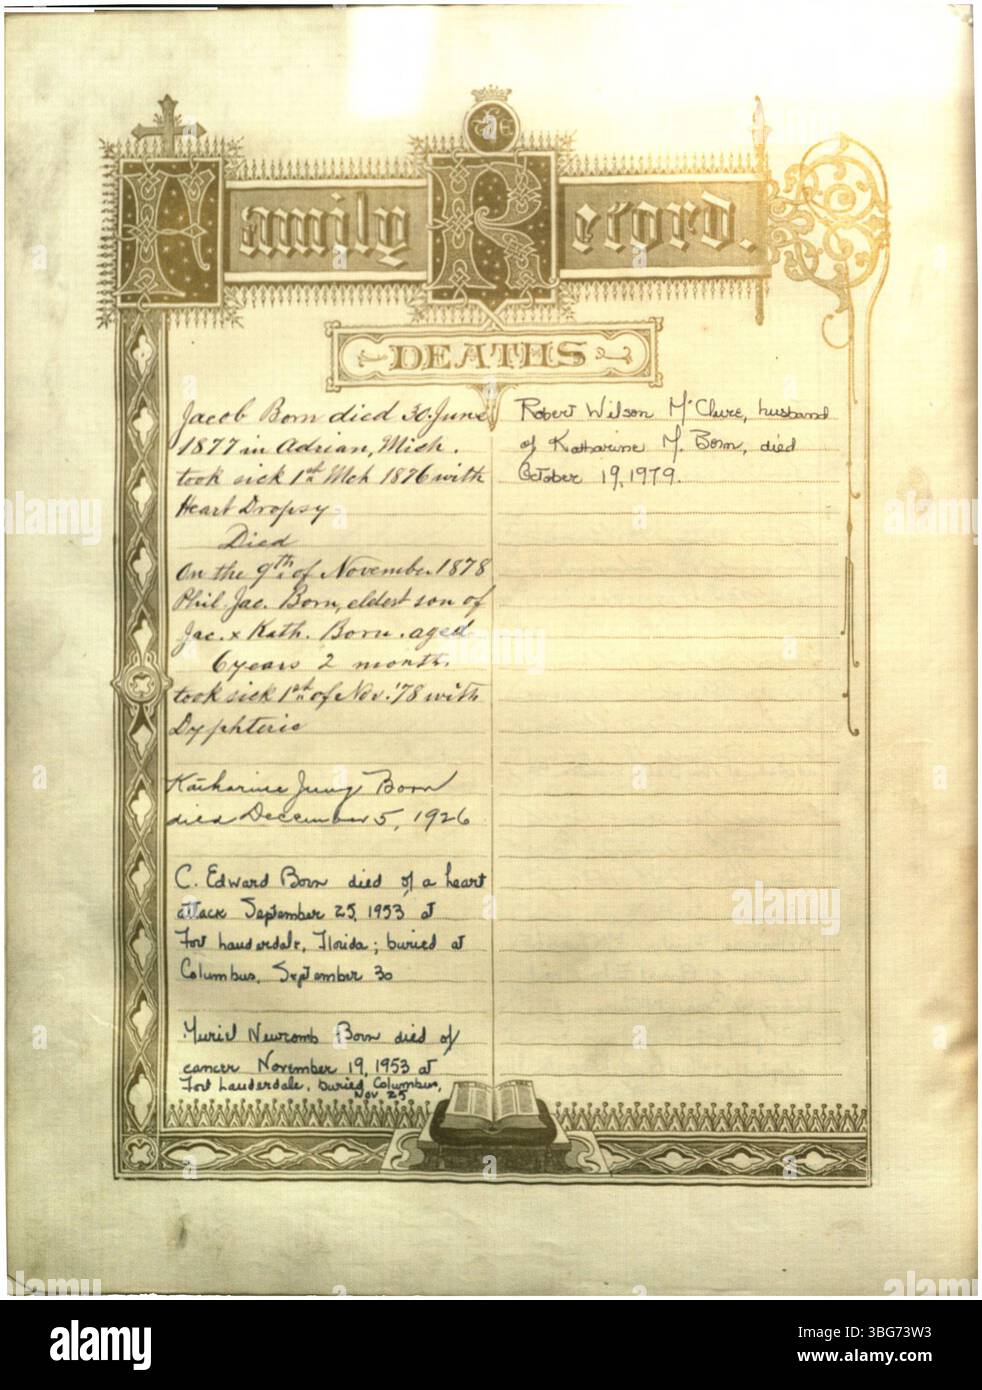 Family Record.
DEATHS
Jacob Born died 30. June
1877 in Adrian, Mich.
took sick 1st Mch 1876 with
Heart Dropsy
Died
On the 9th of November 1878
Phil. Jac. Born, eldest son of
Jac. & Kath. Born. aged
6 years 2 month.
took sick 1st of Nov. '78 with
Dyphterie
Katharine Jung Born
died December 5, 1926
C. Edward Born died of a heart
attack September 25, 1953 at
Fort Lauderdale, Florida; buried at
Columbus, September 30
Muriel Newcomb Born died of
cancer November 19, 1953 at
Fort Lauderdale, buried Columbus,
Nov 25
Robert Wilson McClure, husband
of Katharine M. Born, died
October 19, 1979.
alamy
alamy
Image ID: 3BG73W3
www.alamy.com